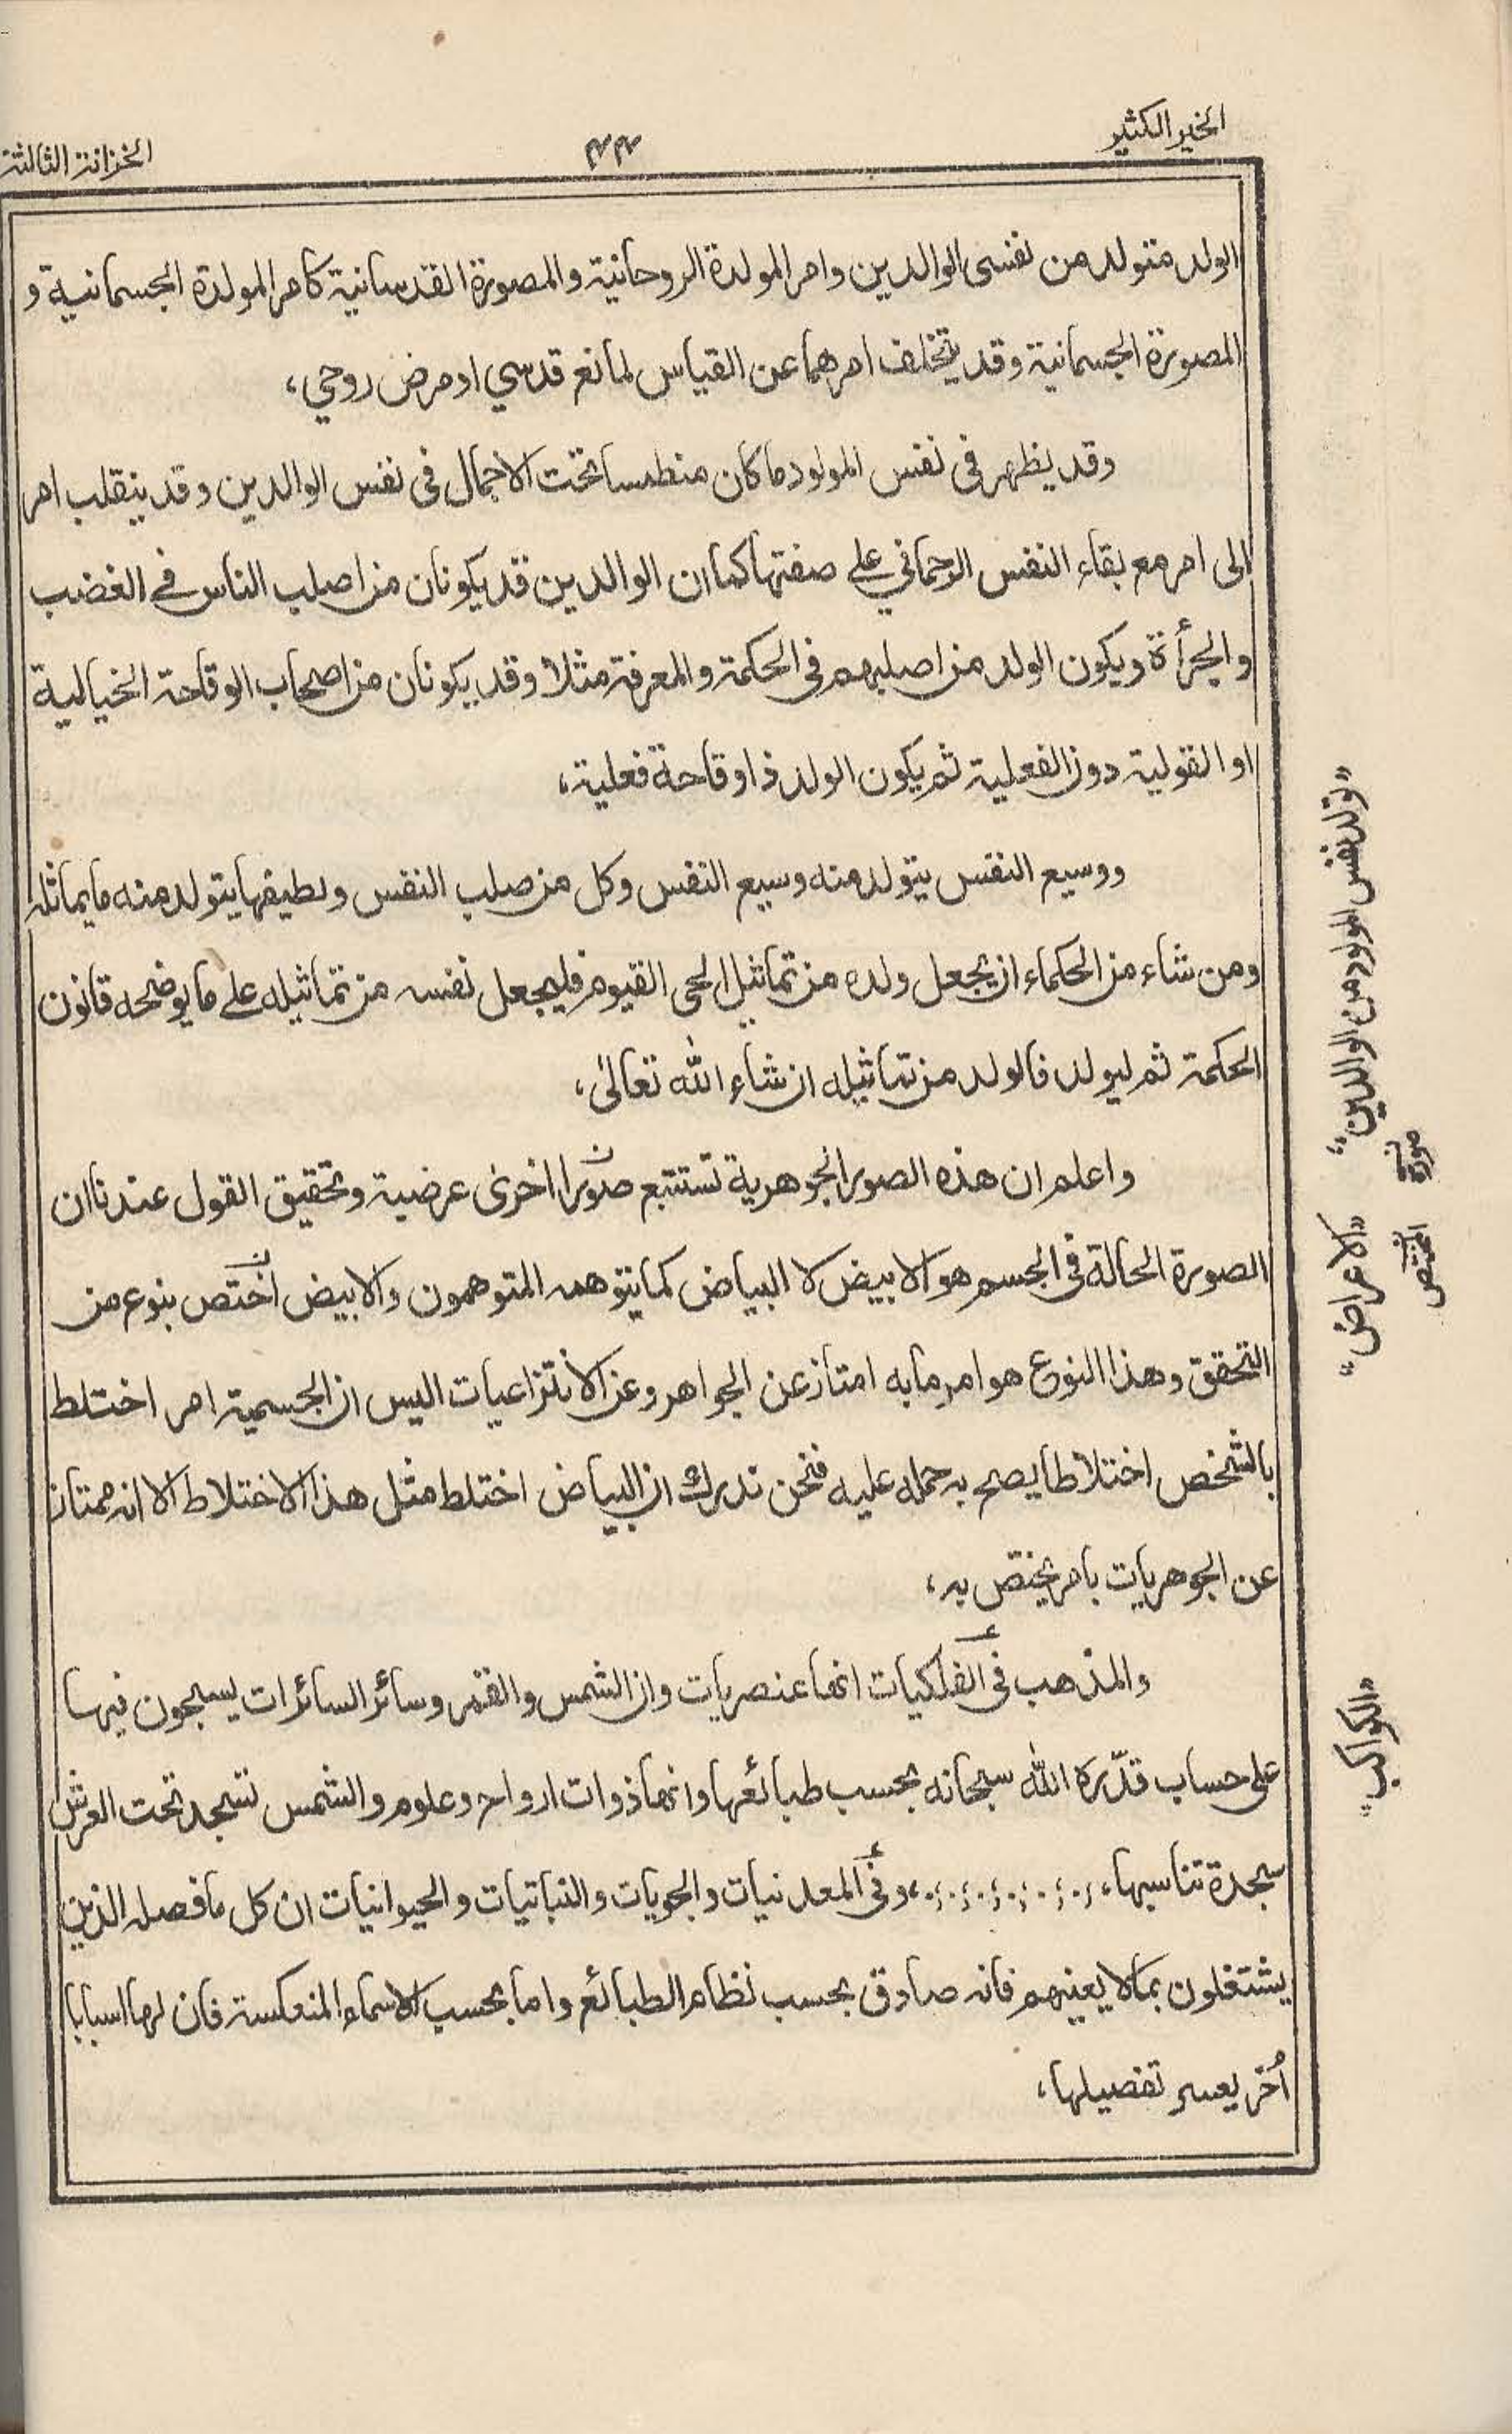 الخير الكثير
٤٤
الخزانة الثالثة
الولد متولد من نفسي الوالدين وامر المولدة الروحانية والمصورة القدسانية كامر المولدة الجسمانية و
المصورة الجسمانية وقد يتخلف امرهما عن القياس لمانع قدسي او مرض روحي،
وقد يظهر في نفس المولود ما كان منطمسا تحت الاجمال في نفس الوالدين وقد ينقلب امر
الى امر مع بقاء النفس الرحماني على صفتها كما ان الوالدين قد يكونان من اصلب الناس في الغضب
والجرأة ويكون الولد من اصلبهم في الحكمة والمعرفة مثلا وقد يكونان من اصحاب الوقاحة الخيالية
او القولية دون الفعلية ثم يكون الولد ذا وقاحة فعلية،
ووسيع النفس يتولد منه وسيع النفس وكل من صلب النفس ولطيفها يتولد منه ما يماثله
ومن شاء من الحكماء ان يجعل ولده من تماثيل الحي القيوم فليجعل نفسه من تماثيله على ما يوضحه قانون
الحكمة ثم ليولد فالولد من تماثيله ان شاء الله تعالى،
واعلم ان هذه الصور الجوهرية تستتبع صورا اخرى عرضية وتحقيق القول عندنا ان
الصورة الحالة في الجسم هو الابيض لا البياض كما يتوهمه المتوهمون والابيض اختص بنوع من
التحقق وهذا النوع هو امر ما به امتاز عن الجواهر وعن الانتزاعيات اليس ان الجسمية امر اختلط
بالشخص اختلاطا يصح به حمله عليه فنحن ندرك ان البياض اختلط مثل هذا الاختلاط الا انه ممتاز
عن الجوهريات بامر يختص به،
والمذهب في الفلكيات انها عنصريات وان الشمس والقمر وسائر السائرات يسبحون فيها
على حساب قدّره الله سبحانه بحسب طبائعها وانها ذوات ارواح وعلوم والشمس تسجد تحت العرش
سجدة تناسبها، وفي المعدنيات والجويات والنباتيات والحيوانيات ان كل ما فصله الذين
يشتغلون بما لا يعنيهم فانه صادق بحسب نظام الطبائع واما بحسب الاسماء المنعكسة فان لها اسبابا
أُخر يعسر تفصيلها،
«تولد نفس المولود من الوالدين»
صورة
«الاعراض»
«الكواكب»